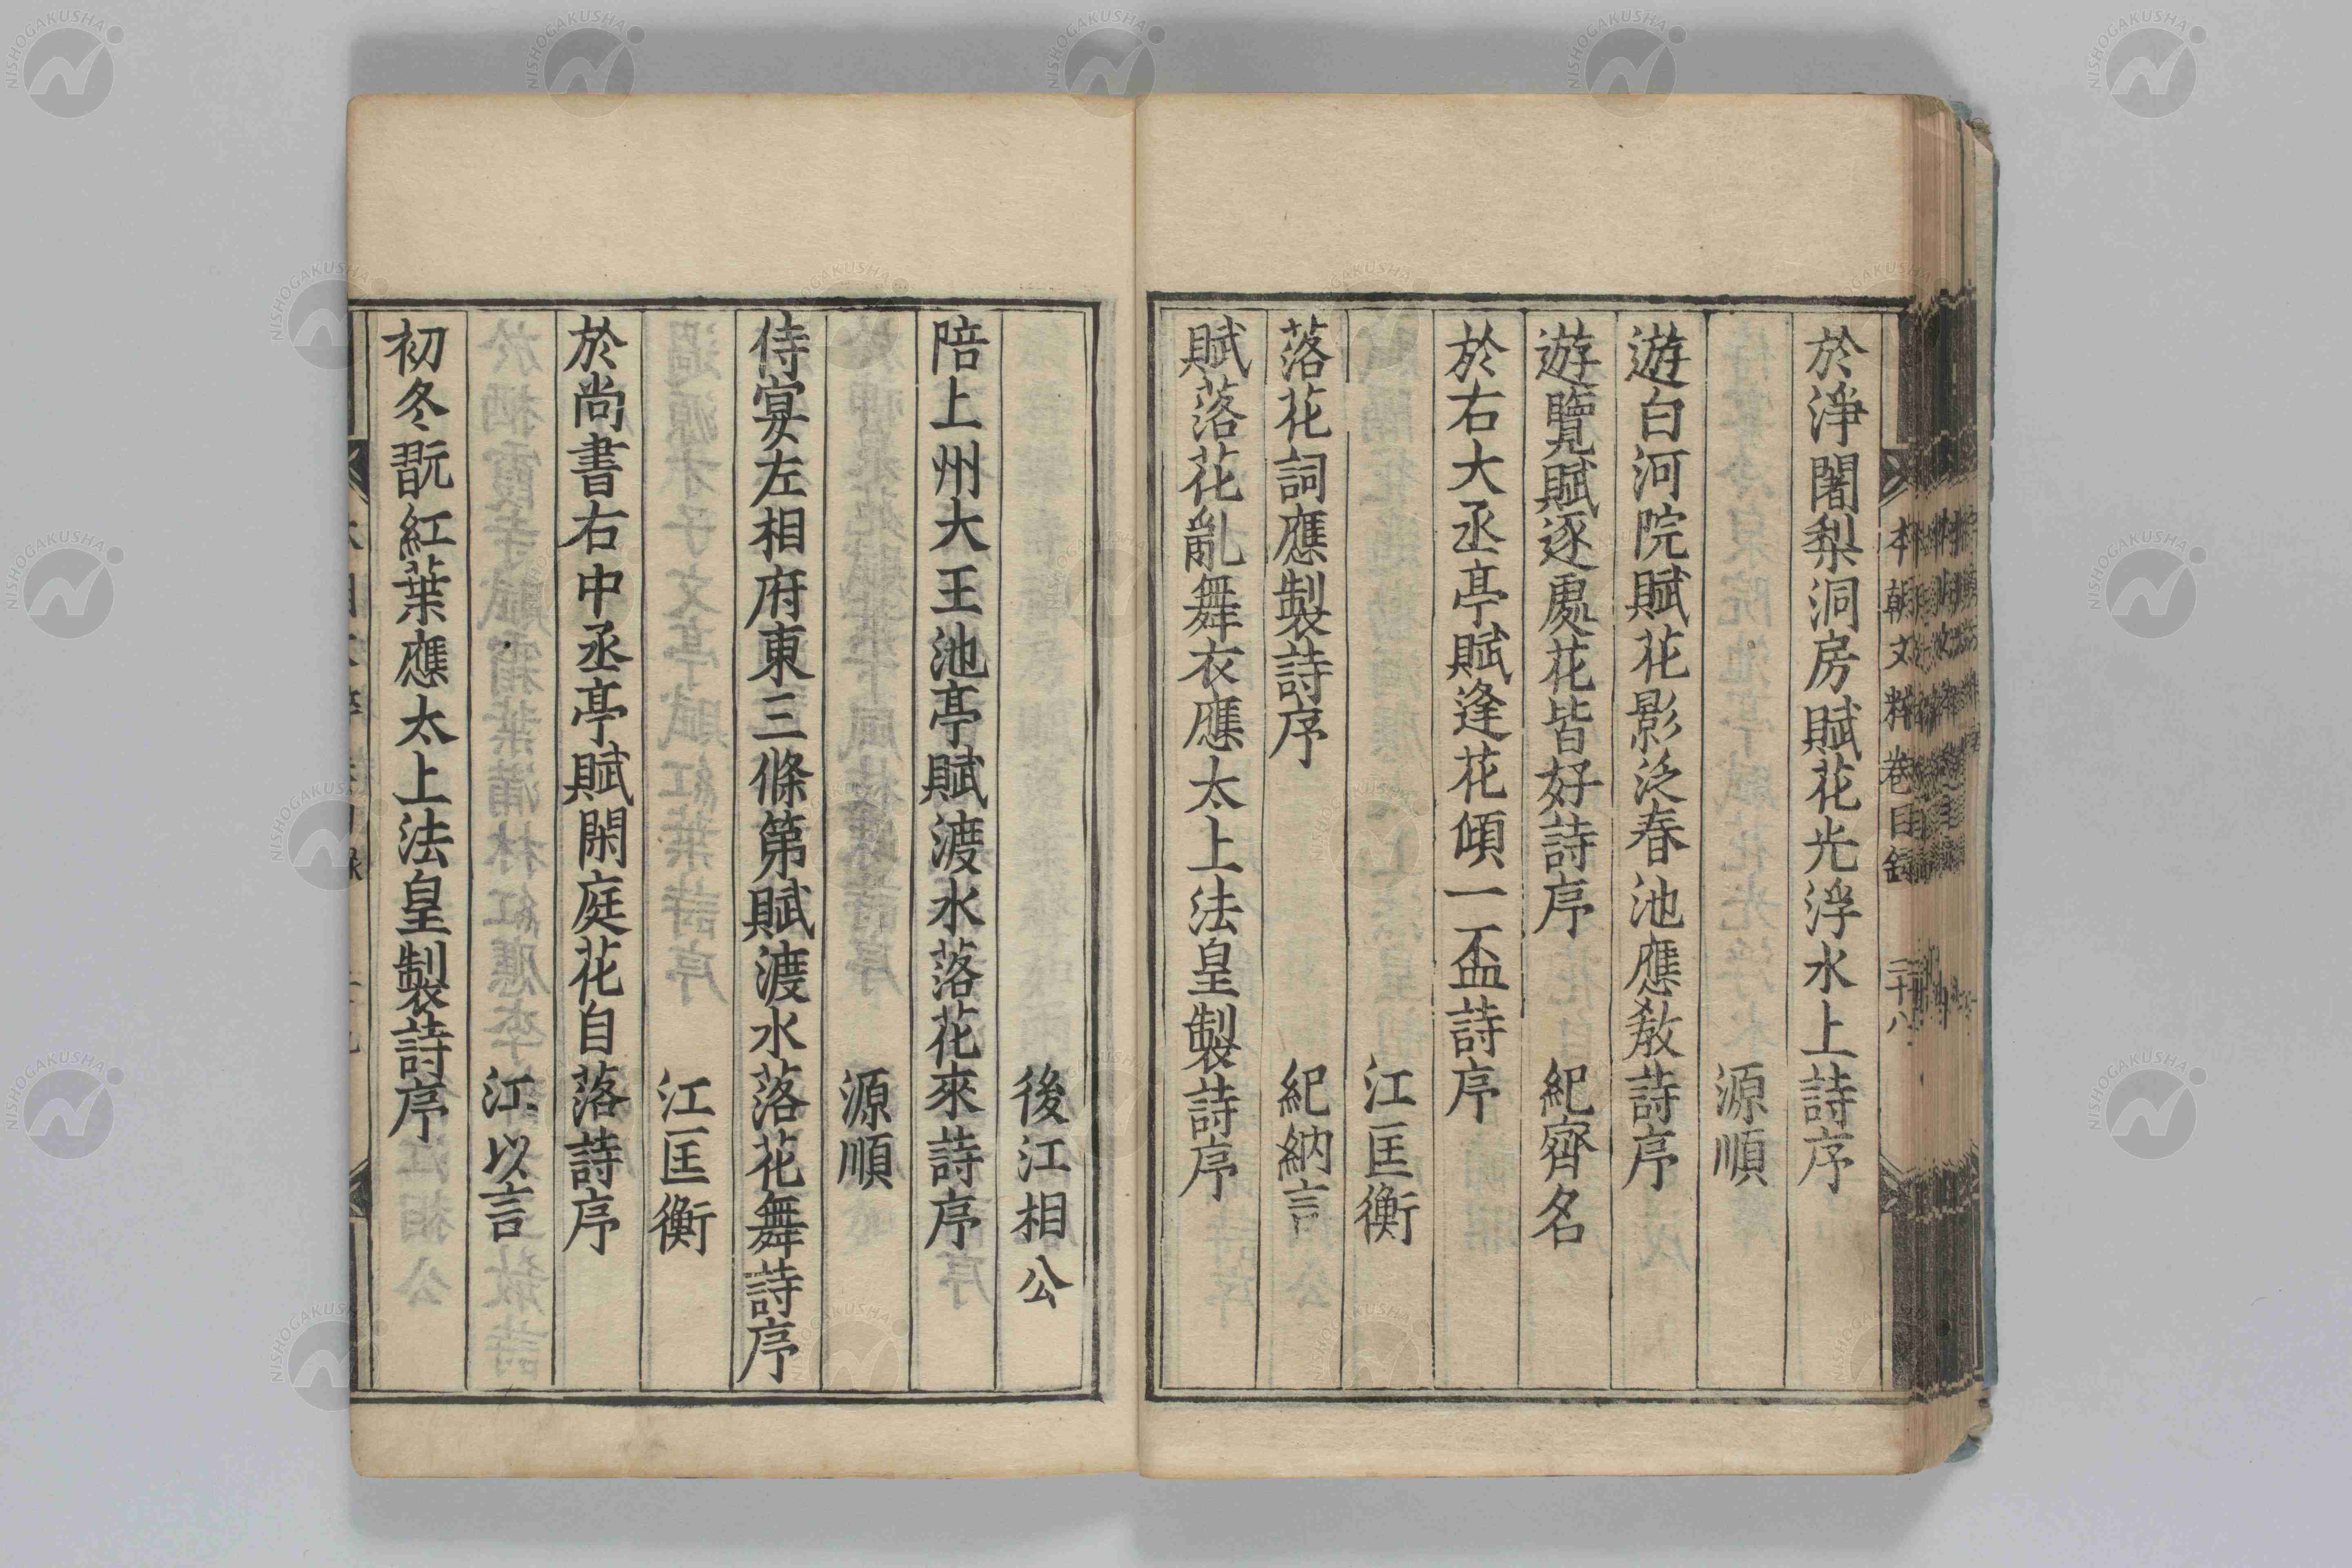 於淨闍梨洞房賦花光浮水上詩序
源順
遊白河院賦花影泛春池應教詩序
遊覽賦逐處花皆好詩序 紀齊名
於右大丞亭賦逢花傾一盃詩序
江匡衡
落花詞應製詩序 紀納言
賦落花亂舞衣應太上法皇製詩序
本朝文粹卷目録 二十八
後江相公
陪上州大王池亭賦渡水落花來詩序
源順
侍宴左相府東三條第賦渡水落花舞詩序
江匡衡
於尚書右中丞亭賦閑庭花自落詩序
江以言
初冬翫紅葉應太上法皇製詩序
NISHOGAKUSHA